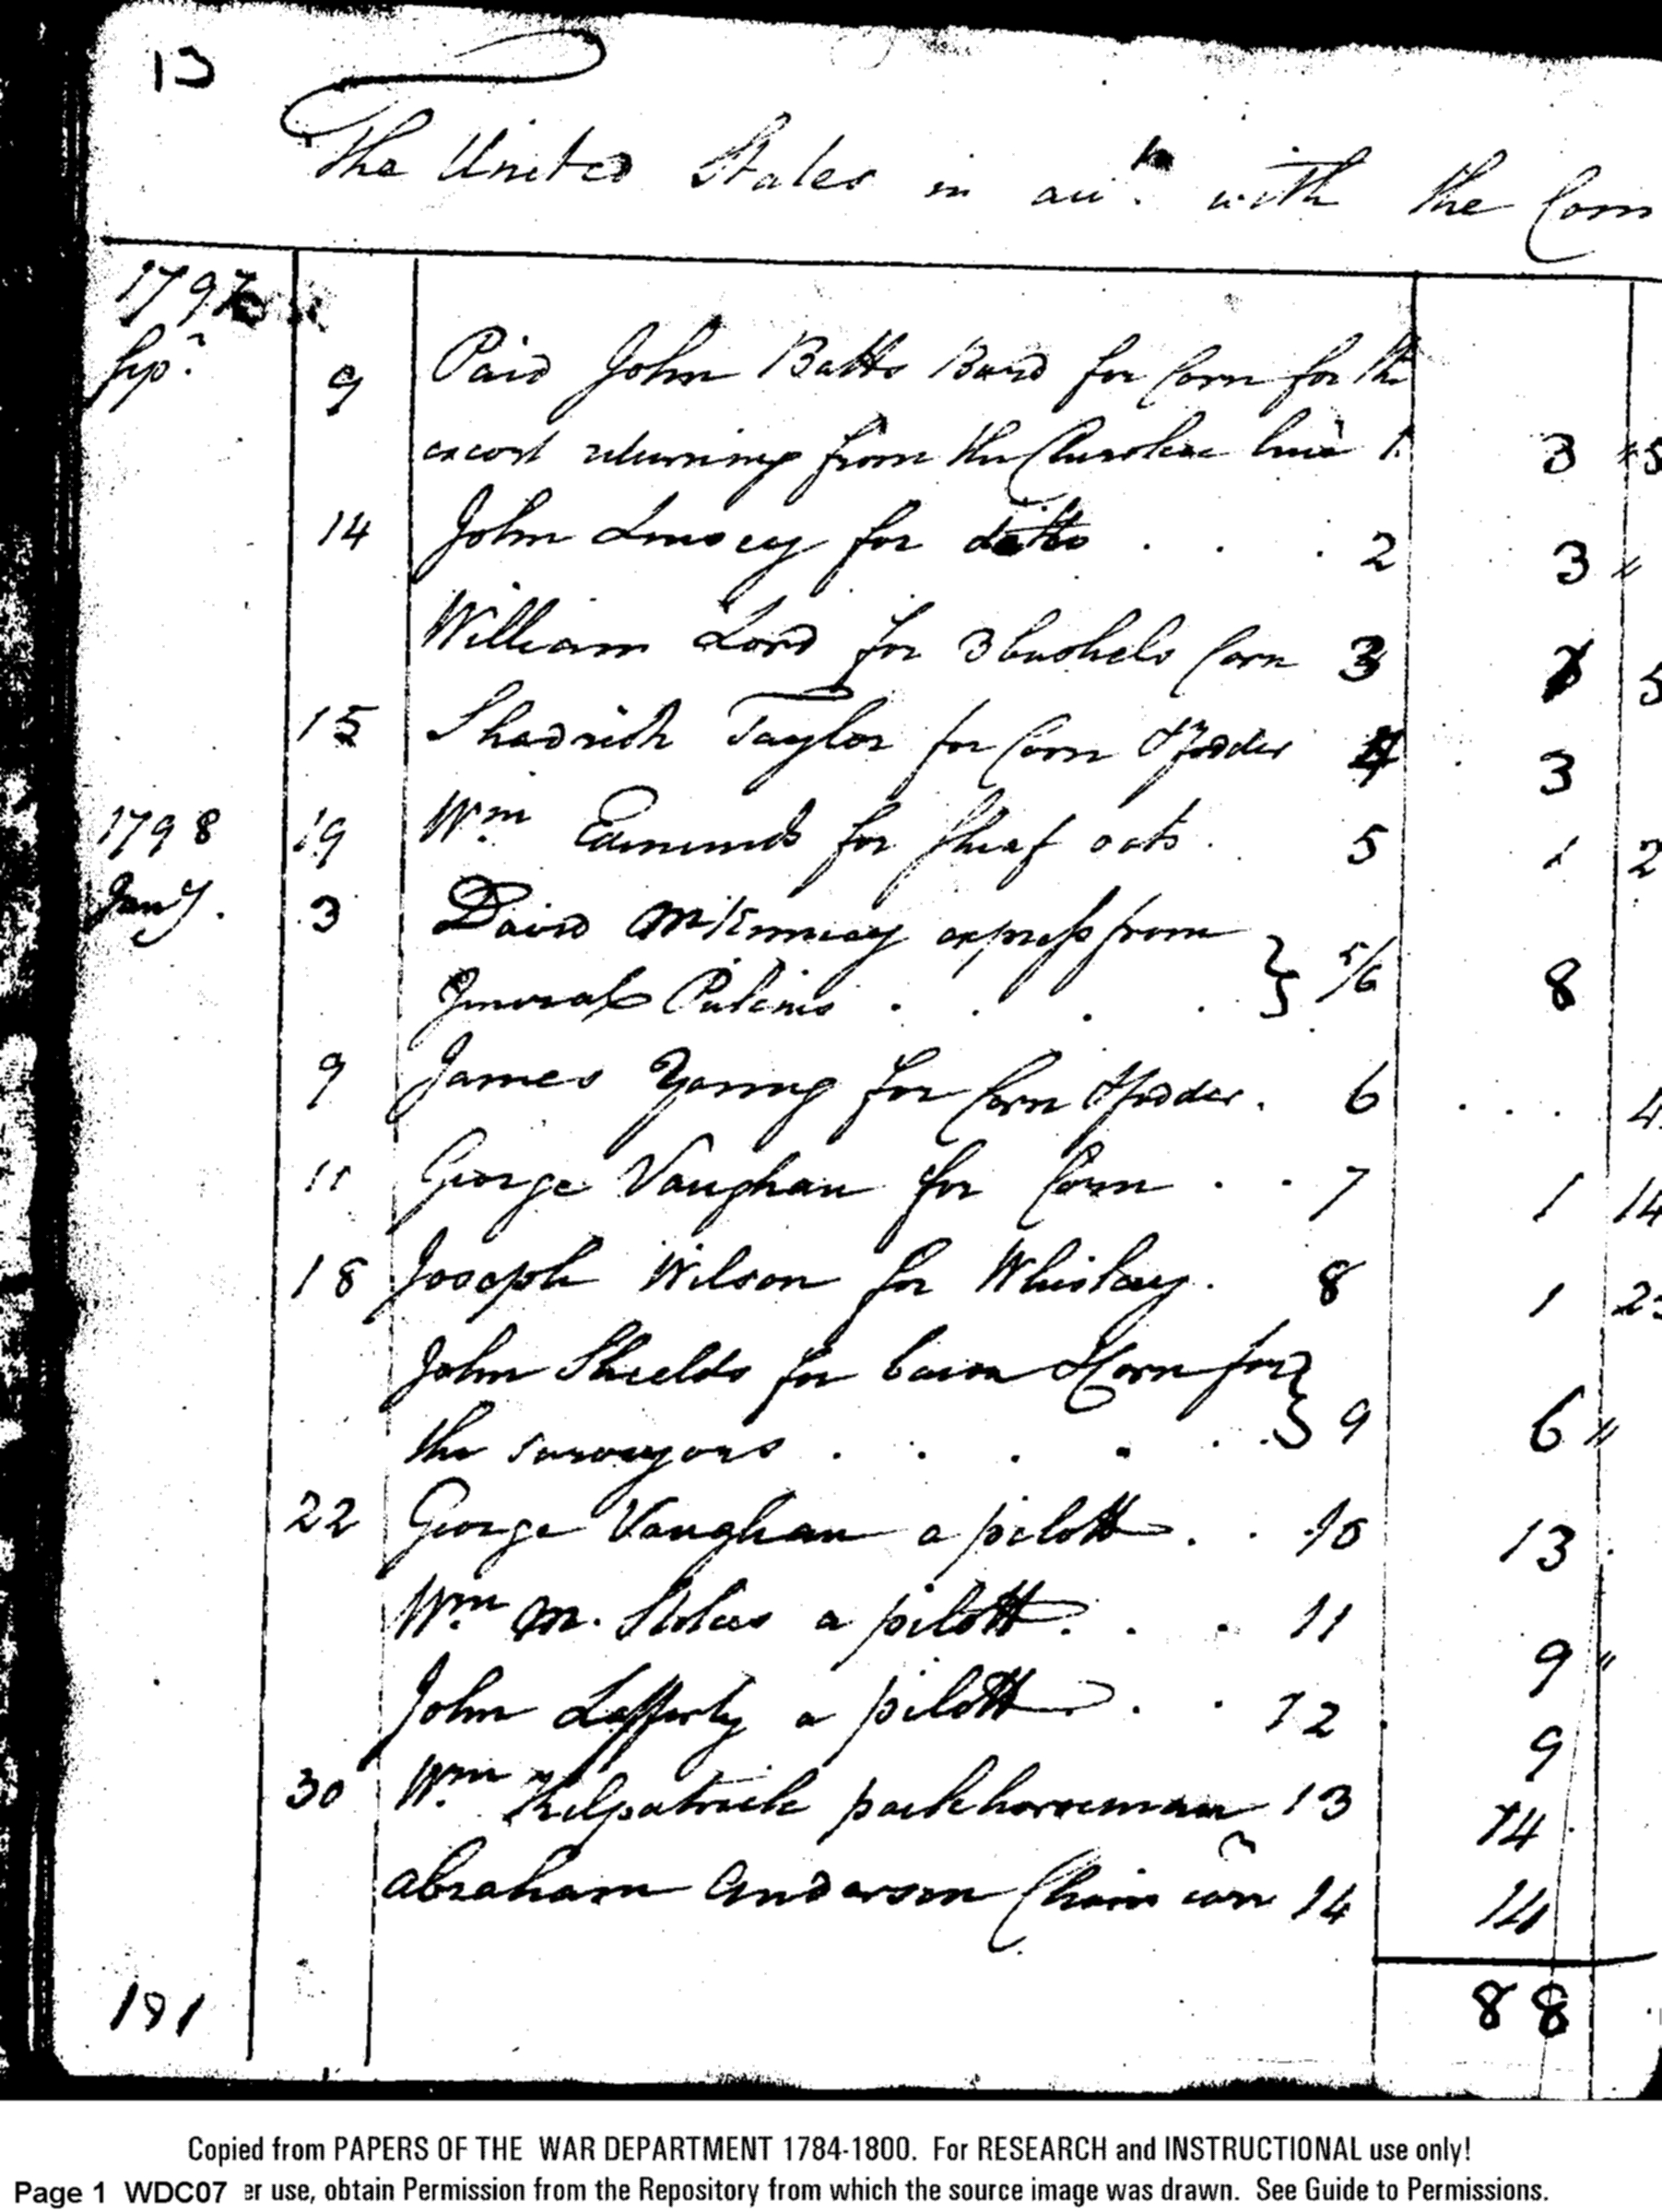 13
The United States in acct. with the Com
1797
Sepr. 9 Paid John Batts Bard for Corn for the
escort returning from the Cherokee line 1 3 " 5
14 John Linsey for ditto . . . 2 3 "
William Lord for 3 bushels Corn 3 5
15 Shadrich Taylor for Corn & fodder 4 . 3
1798 19 Wm. Edmunds for sheaf oats . . 5 1 2
Jany. 3 David McKinney express from
General Pickins . . . . } 5/6 8
9 James Young for Corn & fodder . 6 . . . 4
11 George Vaughan for Corn . . 7 1 14
18 Joseph Wilson for Whiskey . 8 1 2
John Shields for bacon & Corn for }
the surveyors . . . . . 9 6 "
22 George Vaughan a pilott . . 10 13
Wm. M. Stokes a pilott . . . 11 9 "
John Lafferty a pilott . . 12 9
30 Wm. Kilpatrick packhorseman 13 14
Abraham Anderson Chain carr 14 14
191 88
Copied from PAPERS OF THE WAR DEPARTMENT 1784-1800. For RESEARCH and INSTRUCTIONAL use only!
Page 1 WDC07 er use, obtain Permission from the Repository from which the source image was drawn. See Guide to Permissions.